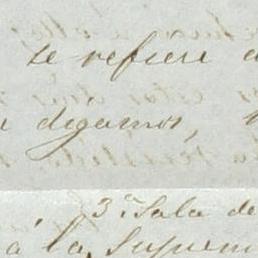 se refiere
digamos,
3.ª Sala de
á la Suprem